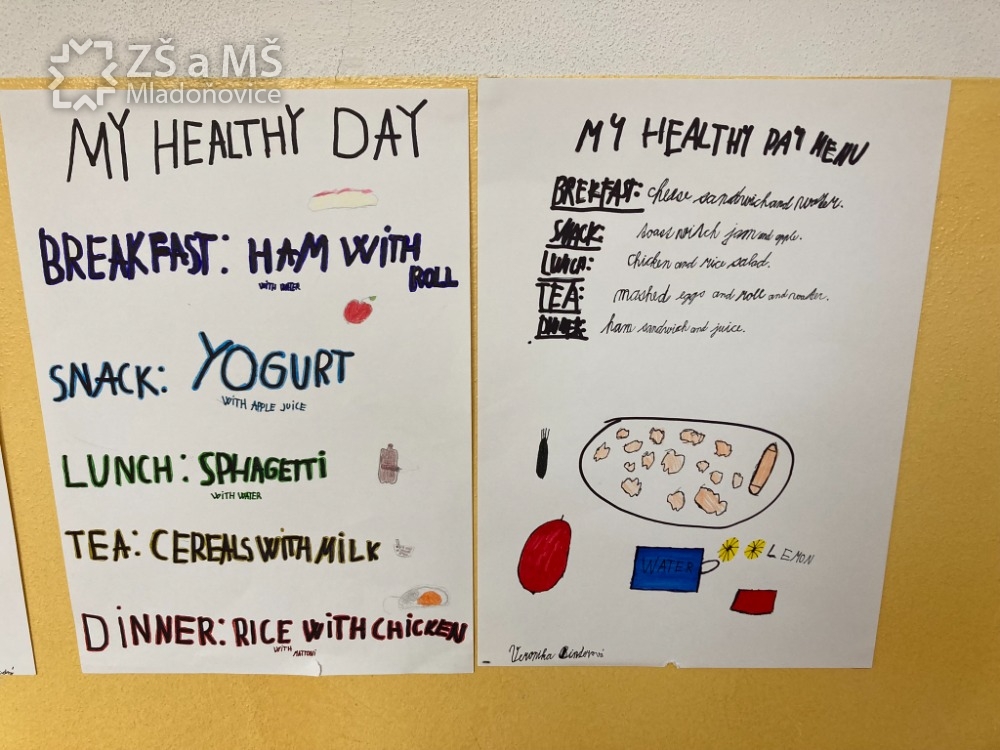 ZŠ a MŠ
Mladoňovice
MY HEALTHY DAY
BREAKFAST: HAM WITH
ROLL
WITH WATER
SNACK: YOGURT
WITH APPLE JUICE
LUNCH: SPHAGETTI
WITH WATER
TEA: CEREALS WITH MILK
DINNER: RICE WITH CHICKEN
WITH MATTONI
MY HEALTHY DAY MENU
BREKFAST: cheese sandwich and water.
SNACK: toast witch jam and apple.
LUNCH: chicken and rice salad.
TEA: mashed eggs and roll and water.
DINNER: ham sandwich and juice.
WATER
LEMON
Veronika